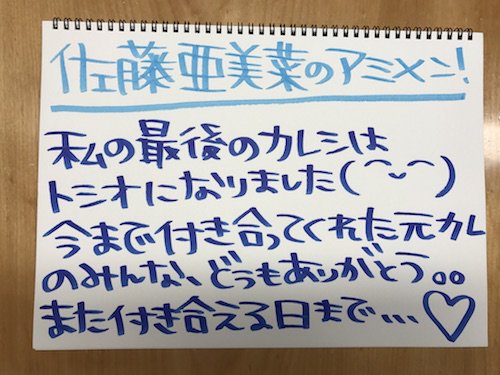 佐藤亜美菜のアミメン!
私の最後のカレシは
トシオになりました(⌒⌣⌒)
今まで付き合ってくれた元カレ
のみんな、どうもありがとう。。
また付き合える日まで...♡